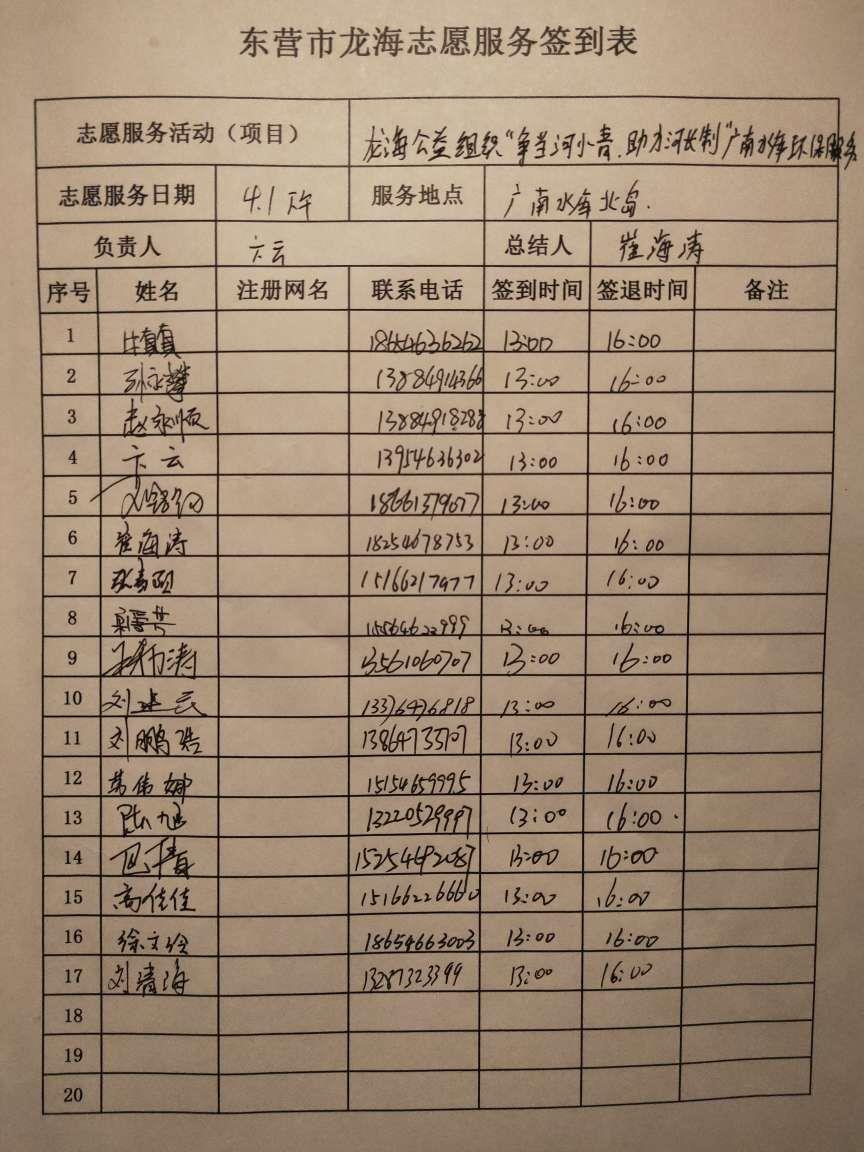 东营市龙海志愿服务签到表
志愿服务活动（项目） 龙海公益组织“争当河小青.助力河长制”广南水库环保服务
志愿服务日期 4.1下午 服务地点 广南水库北岛.
负责人 卞云 总结人 崔海涛
序号 姓名 注册网名 联系电话 签到时间 签退时间 备注
1 牛真真 18654636262 13:00 16:00
2 孙永攀 13884914366 13:00 16:00
3 赵永顺 13884918288 13:00 16:00
4 卞云 13954636302 13:00 16:00
5 18661379677 13:00 16:00
6 崔海涛 18254678753 13:00 16:00
7 15166217977 13:00 16:00
8 15564622999 13:00 16:00
9 13561060707 13:00 16:00
10 刘建云 13376476818 13:00 16:00
11 刘鹏浩 13:00 16:00
12 韩伟娜 15154659995 13:00 16:00
13 13220529997 13:00 16:00.
14 15254692087 13:00 16:00
15 高佳佳 15166226660 13:00 16:00
16 徐文玲 18654663003 13:00 16:00
17 刘清海 13287323399 13:00 16:00
18
19
20